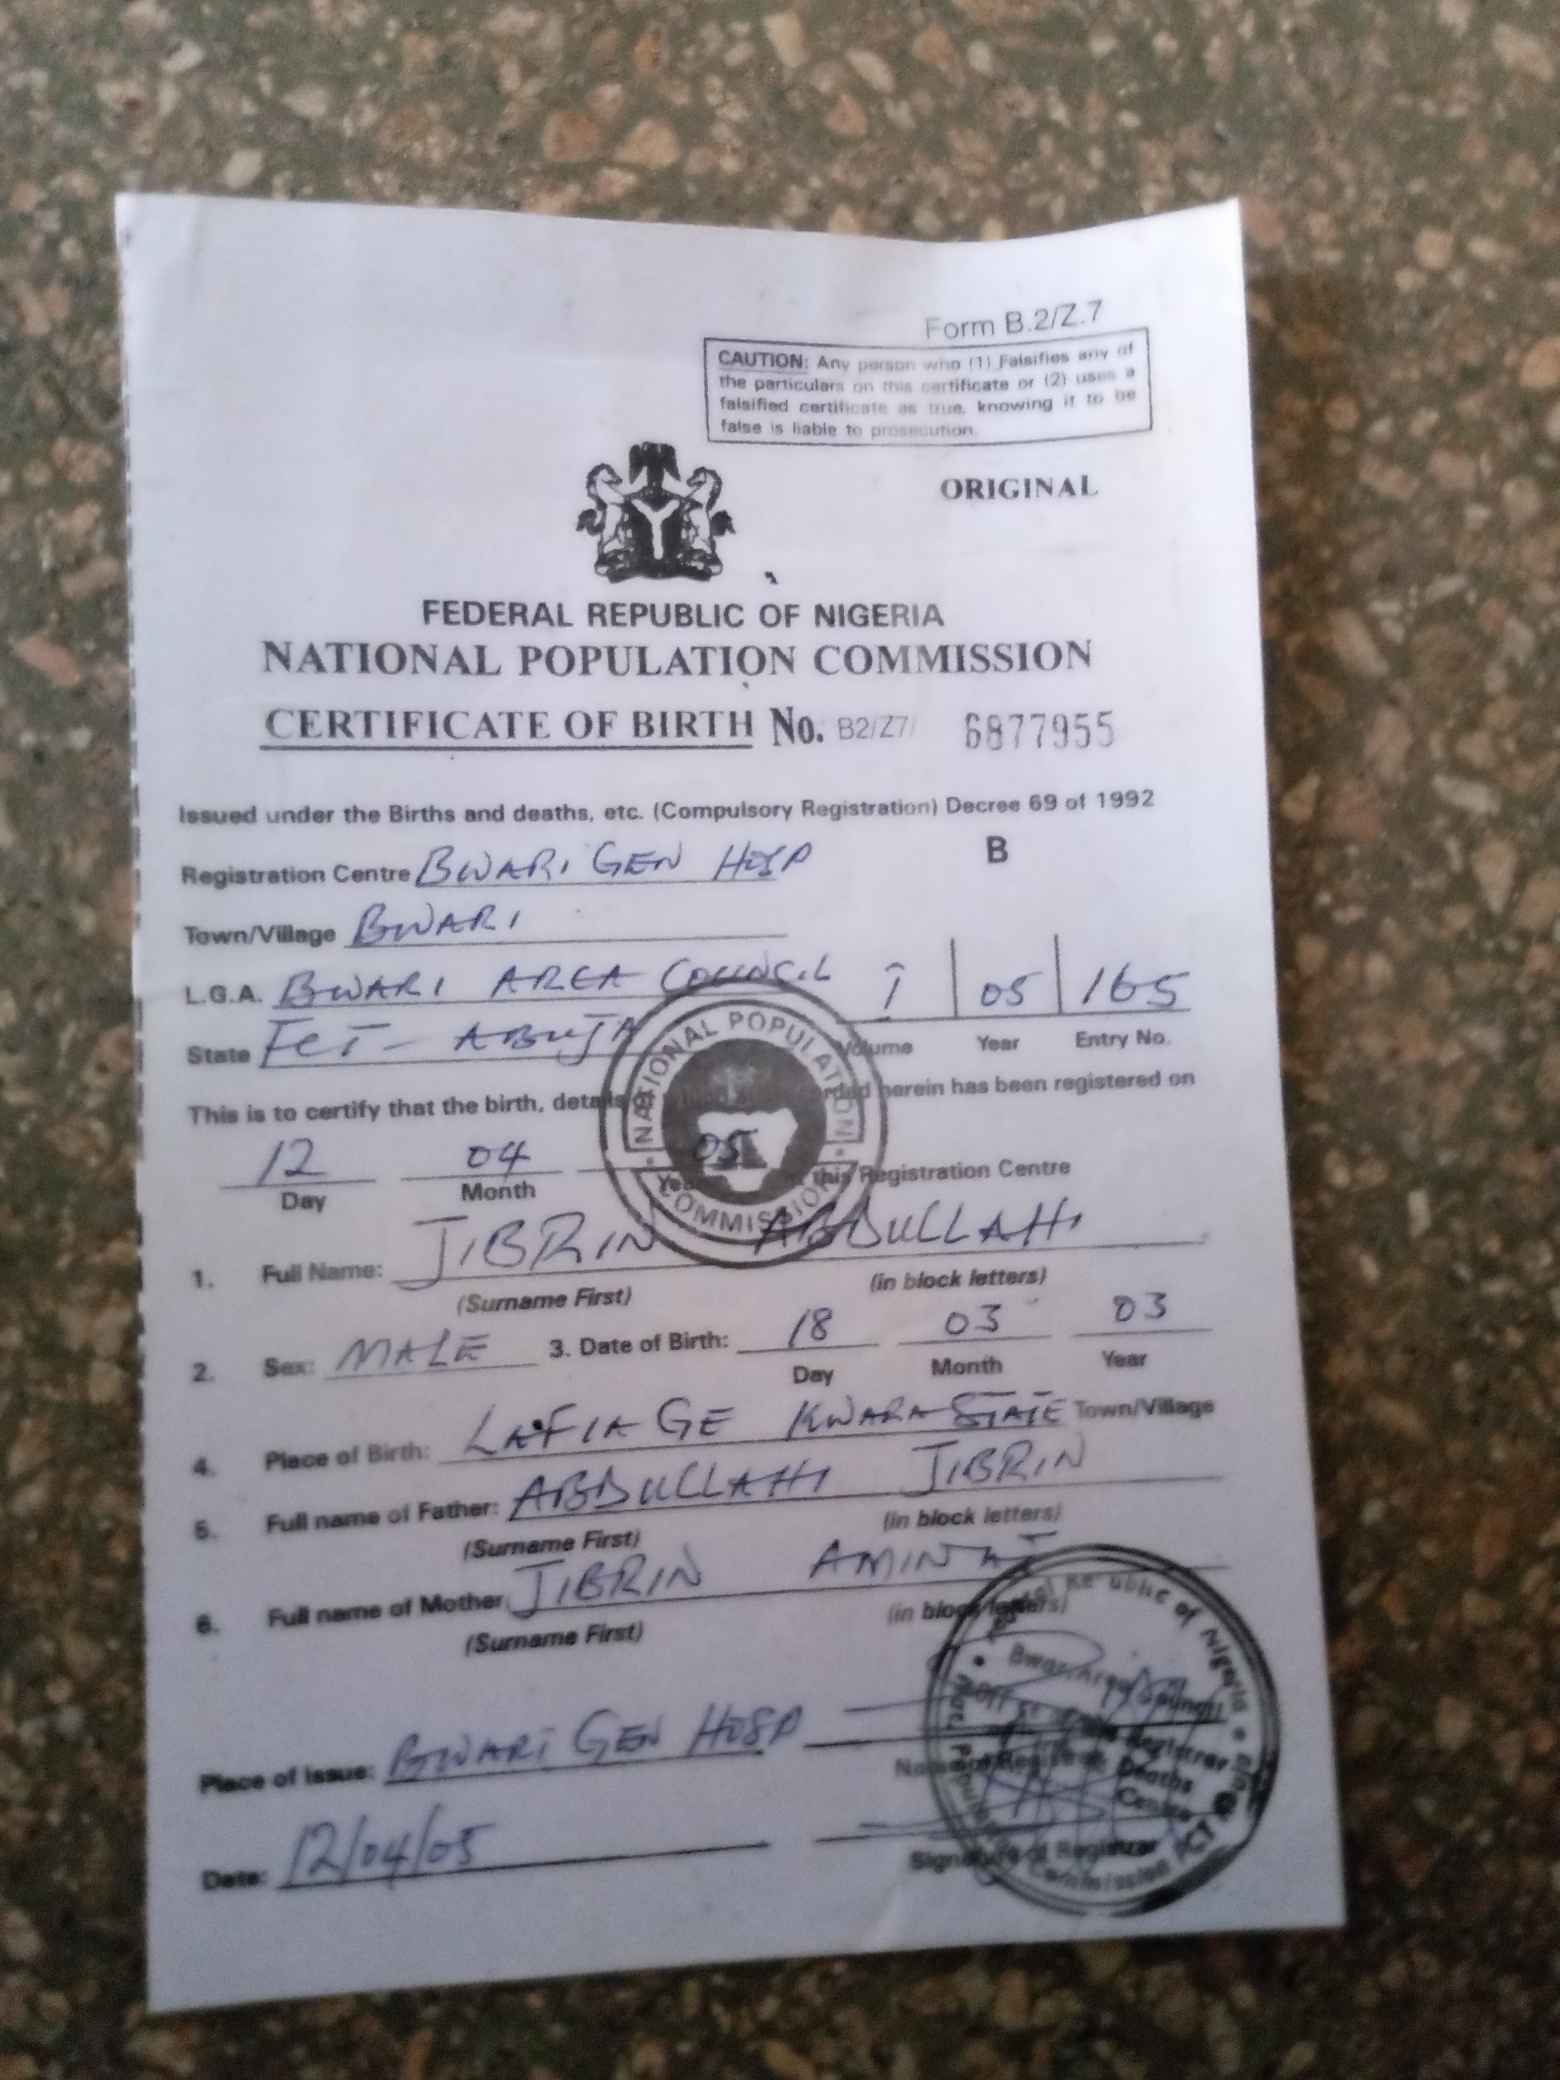 Form B.2/Z.7
CAUTION: Any person who (1) Falsifies any of
the particulars on this certificate or (2) uses a
falsified certificate as true, knowing it to be
false is liable to prosecution.
ORIGINAL
FEDERAL REPUBLIC OF NIGERIA
NATIONAL POPULATION COMMISSION
CERTIFICATE OF BIRTH No. B2/Z7/ 6877955
Issued under the Births and deaths, etc. (Compulsory Registration) Decree 69 of 1992
Registration Centre BWARI GEN HOSP B
Town/Village BWARI
L.G.A. BWARI AREA COUNCIL I 05 165
State FCT - ABUJA Volume Year Entry No.
NATIONAL POPULATION COMMISSION
This is to certify that the birth, details of herein has been registered on
12 04 05 this Registration Centre
Day Month Year
1. Full Name: JIBRIN ABDULLAHI
(Surname First) (in block letters)
2. Sex: MALE 3. Date of Birth: 18 03 03
Day Month Year
4. Place of Birth: LAFIAGE KWARA STATE Town/Village
5. Full name of Father: ABDULLAHI JIBRIN
(Surname First) (in block letters)
6. Full name of Mother JIBRIN AMINAT
(Surname First) (in block letters)
Place of Issue: BWARI GEN HOSP
Bwari Area Council
Date: 12/04/05 Signature of Registrar